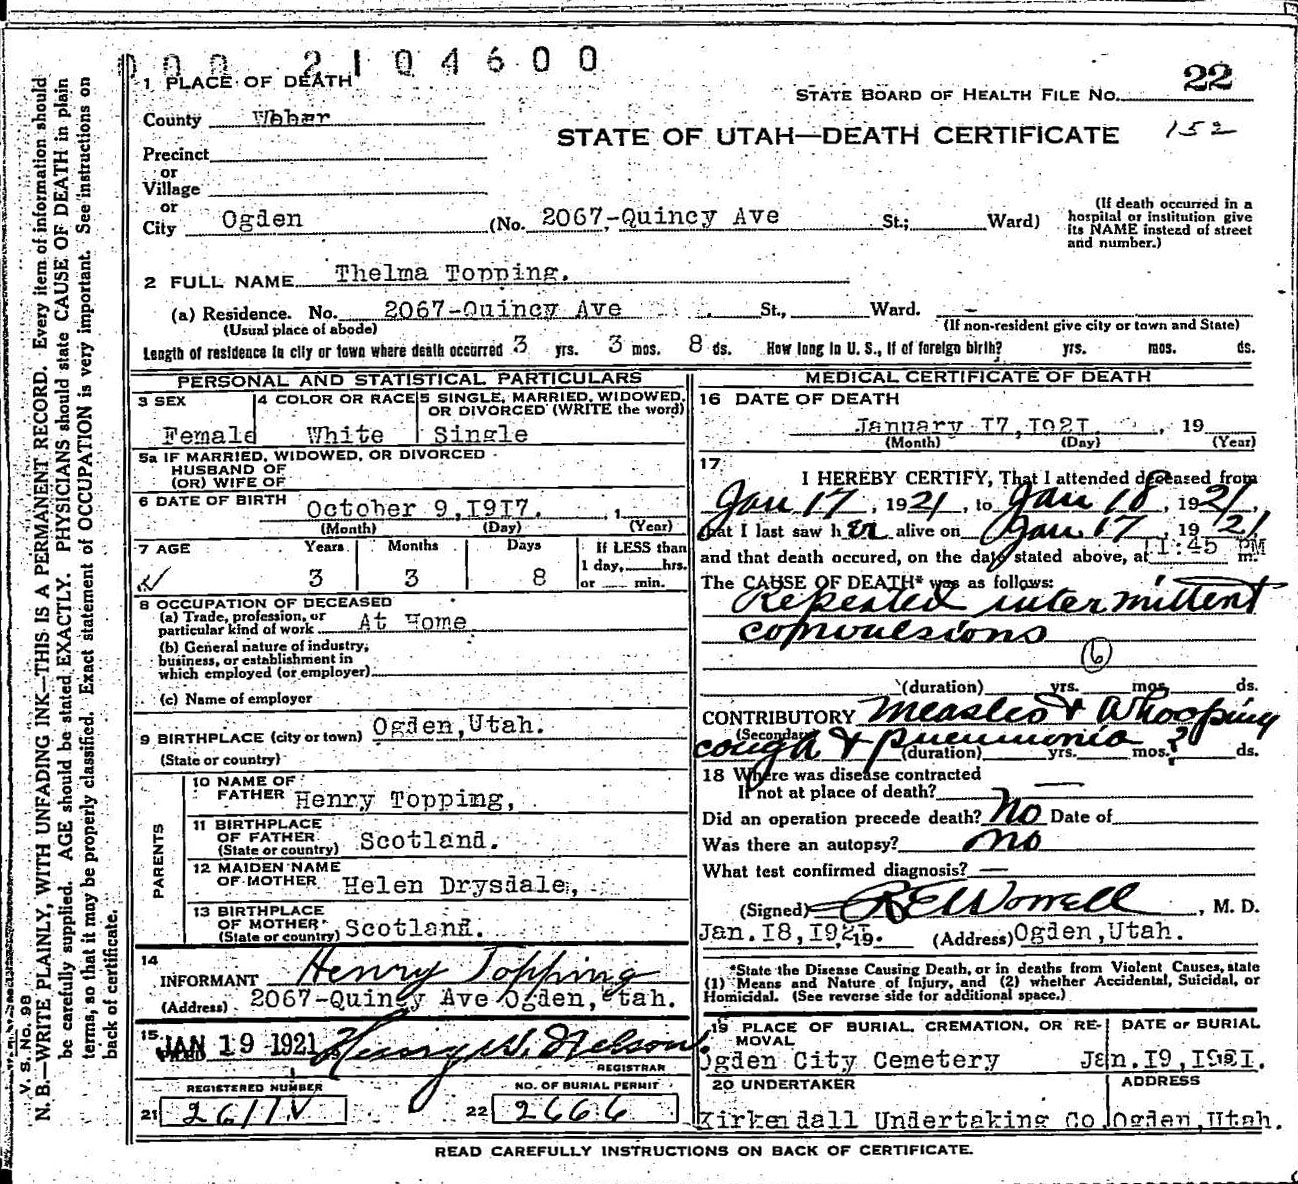 000 2104600
1 PLACE OF DEATH
STATE BOARD OF HEALTH FILE NO. 22
152
County Weber
STATE OF UTAH—DEATH CERTIFICATE
Precinct
or
Village
or
City Ogden (No. 2067-Quincy Ave St.; Ward)
(If death occurred in a
hospital or institution give
its NAME instead of street
and number.)
2 FULL NAME Thelma Topping.
(a) Residence. No. 2067-Quincy Ave St., Ward. –
(Usual place of abode) (If non-resident give city or town and State)
Length of residence in city or town where death occurred 3 yrs. 3 mos. 8 ds. How long in U. S., if of foreign birth? yrs. mos. ds.
PERSONAL AND STATISTICAL PARTICULARS
3 SEX 4 COLOR OR RACE 5 SINGLE, MARRIED, WIDOWED,
OR DIVORCED (WRITE the word)
Female White Single
5a IF MARRIED, WIDOWED, OR DIVORCED
HUSBAND OF
(OR) WIFE OF
6 DATE OF BIRTH October 9, 1917. , 1
(Month) (Day) (Year)
7 AGE Years Months Days If LESS than
1 day,......hrs.
3 3 8 or ...... min.
8 OCCUPATION OF DECEASED
(a) Trade, profession, or
particular kind of work At Home
(b) General nature of industry,
business, or establishment in
which employed (or employer)
(c) Name of employer
9 BIRTHPLACE (city or town) Ogden, Utah.
(State or country)
PARENTS
10 NAME OF
FATHER Henry Topping,
11 BIRTHPLACE
OF FATHER
(State or country) Scotland.
12 MAIDEN NAME
OF MOTHER Helen Drysdale,
13 BIRTHPLACE
OF MOTHER
(State or country) Scotland.
14
INFORMANT Henry Topping
(Address) 2067-Quincy Ave Ogden, Utah.
15
FILED JAN 19 1921 Henry W. Nelson.
REGISTRAR
REGISTERED NUMBER NO. OF BURIAL PERMIT
21 2617V 22 2666
MEDICAL CERTIFICATE OF DEATH
16 DATE OF DEATH
January 17, 1921 , 19
(Month) (Day) (Year)
17
I HEREBY CERTIFY, That I attended deceased from
Jan 17, 1921, to Jan 18, 1921,
that I last saw her alive on Jan 17, 1921
and that death occured, on the date stated above, at 11:45 PM m.
The CAUSE OF DEATH* was as follows:
Repeated intermittent
convulsions
(6)
(duration) yrs. mos. ds.
CONTRIBUTORY Measles & Whooping
(Secondary)
cough & pneumonia ?
(duration) yrs. mos. ds.
18 Where was disease contracted
If not at place of death? —
Did an operation precede death? No Date of
Was there an autopsy? no
What test confirmed diagnosis? —
(Signed) R E Worrell, M. D.
Jan. 18, 1921. , 19. (Address) Ogden, Utah.
*State the Disease Causing Death, or in deaths from Violent Causes, state
(1) Means and Nature of Injury, and (2) whether Accidental, Suicidal, or
Homicidal. (See reverse side for additional space.)
19 PLACE OF BURIAL, CREMATION, OR RE-
MOVAL
DATE OF BURIAL
Ogden City Cemetery Jan. 19, 1921.
20 UNDERTAKER ADDRESS
Kirkendall Undertaking Co Ogden, Utah.
READ CAREFULLY INSTRUCTIONS ON BACK OF CERTIFICATE.
V. S. No. 98
N. B.—WRITE PLAINLY, WITH UNFADING INK—THIS IS A PERMANENT RECORD. Every item of information should
be carefully supplied. AGE should be stated EXACTLY. PHYSICIANS should state CAUSE OF DEATH in plain
terms, so that it may be properly classified. Exact statement of OCCUPATION is very important. See instructions on
back of certificate.